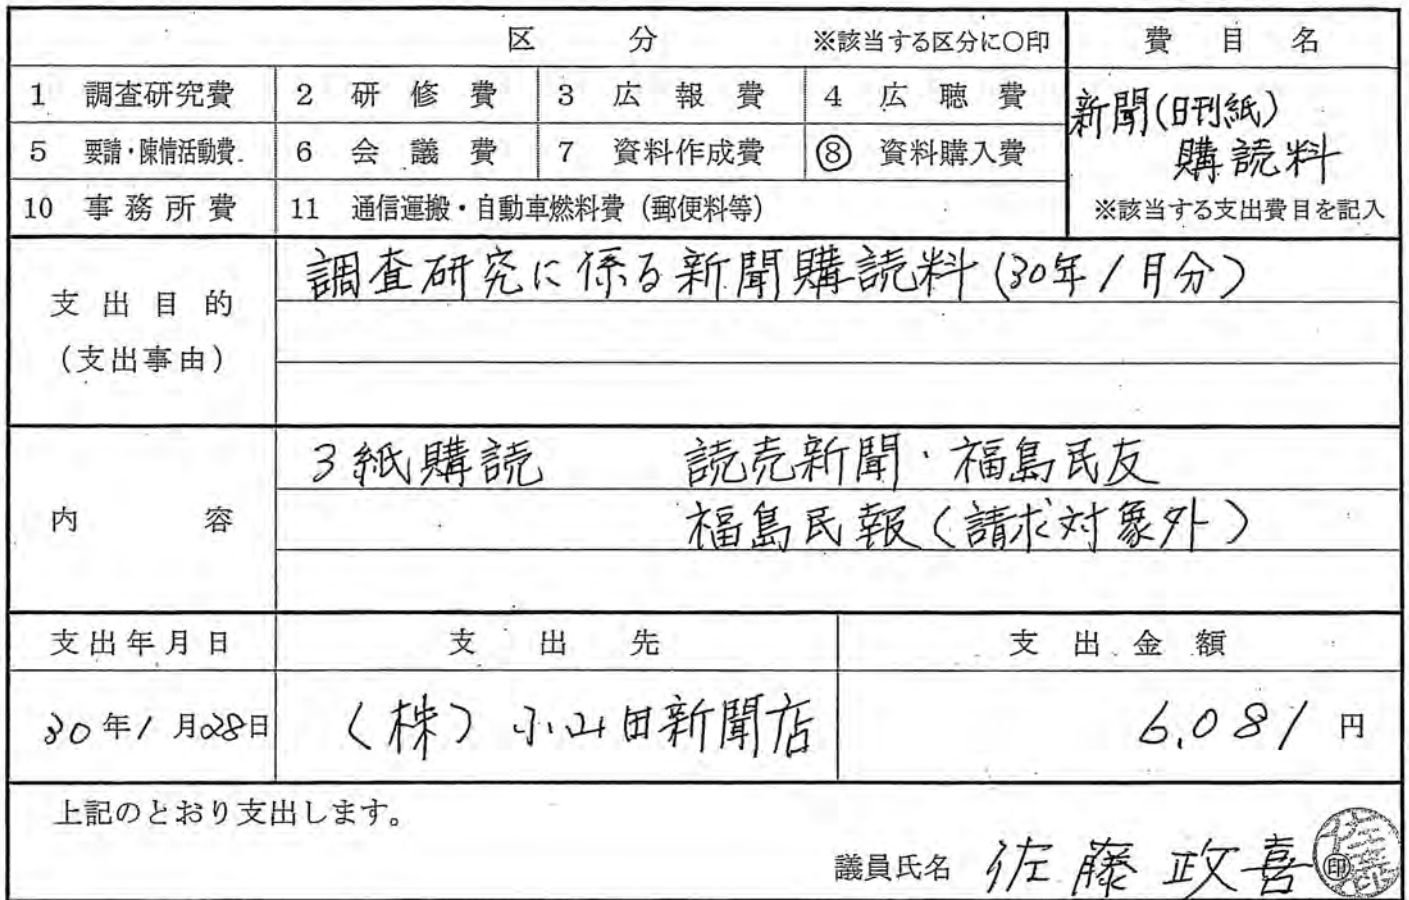 区 分 ※該当する区分に○印 費 目 名
1 調査研究費 2 研 修 費 3 広 報 費 4 広 聴 費
新聞(日刊紙)
5 要請・陳情活動費 6 会 議 費 7 資料作成費 ⑧ 資料購入費
購読料
10 事務所費 11 通信運搬・自動車燃料費(郵便料等) ※該当する支出費目を記入
調査研究に係る新聞購読料(30年1月分)
支出目的
(支出事由)
3紙購読 読売新聞・福島民友
内 容 福島民報(請求対象外)
支出年月日 支 出 先 支 出 金 額
30年1月28日 (株)小山田新聞店 6,081円
上記のとおり支出します。
議員氏名 佐藤 政喜 印